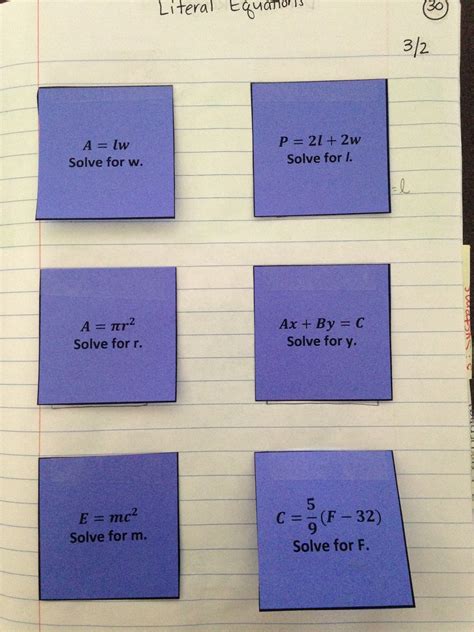 Literal Equations
30
3/2
A = lw
Solve for w.
P = 2l + 2w
Solve for l.
= l
A = πr²
Solve for r.
Ax + By = C
Solve for y.
E = mc²
Solve for m.
C = 5/9 (F − 32)
Solve for F.